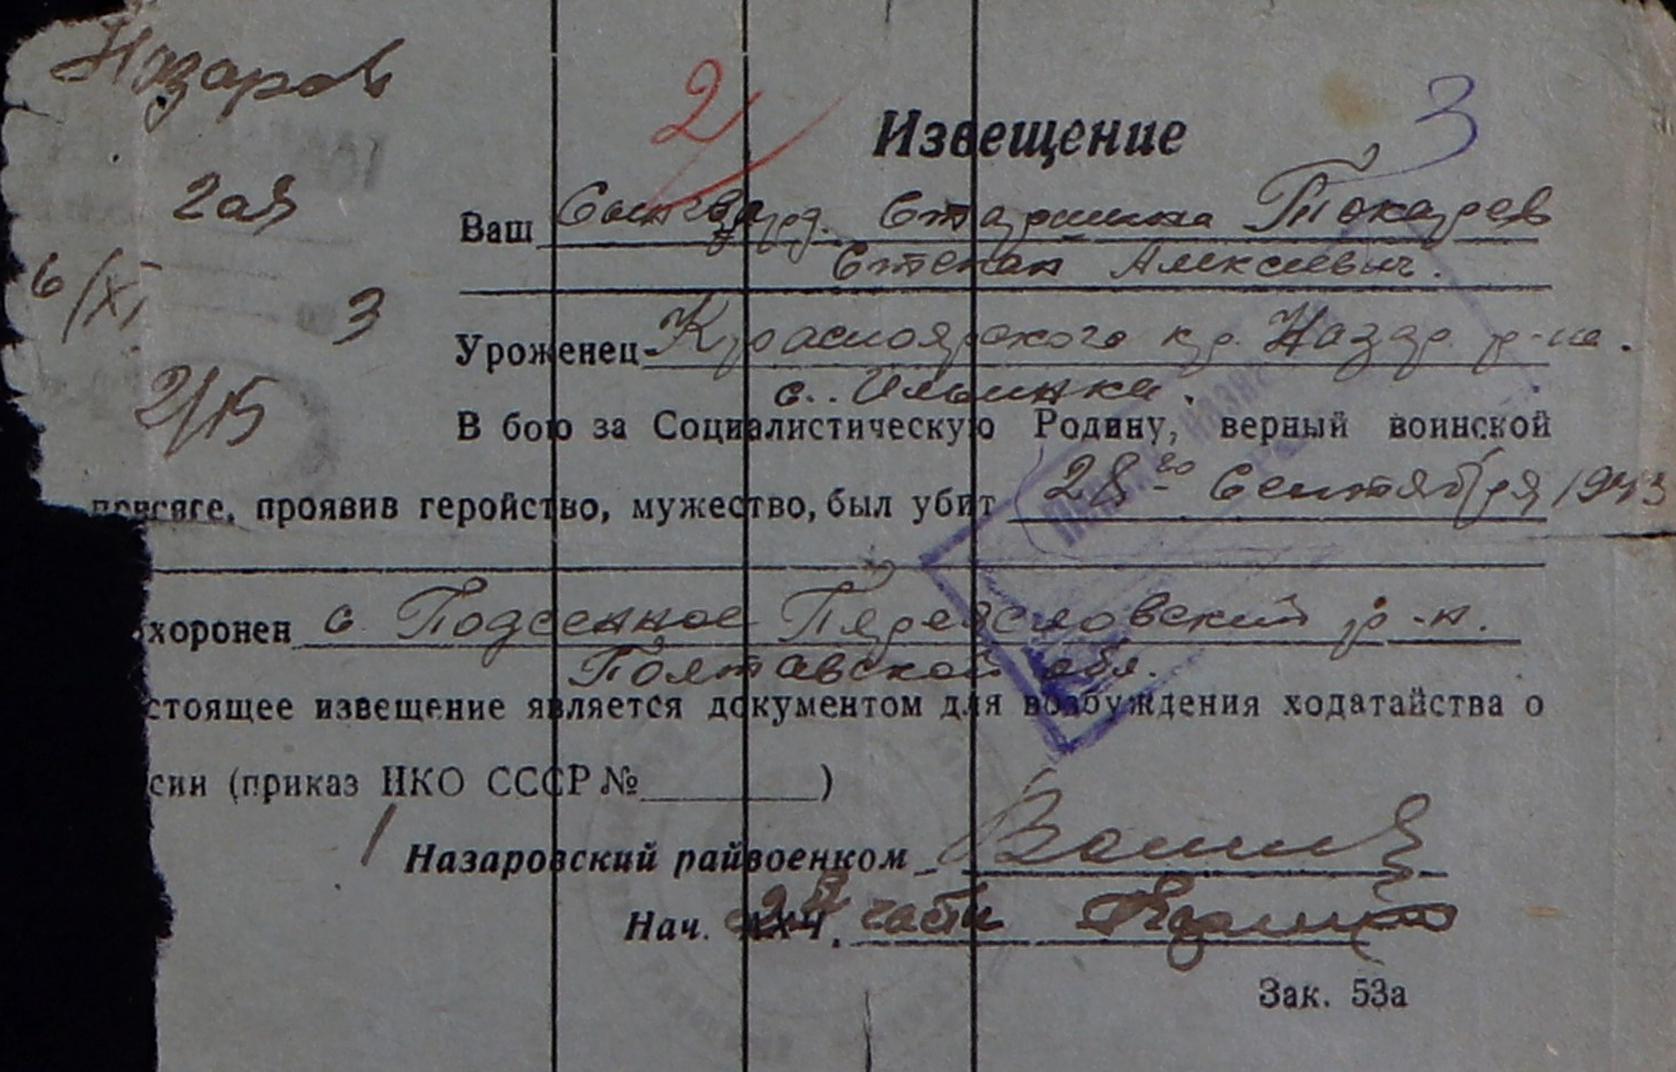 Назаров
2
3
Извещение
2ая
Ваш Сын гвард. Старшина Токарев
Степан Алексеевич.
6/XI 3
Уроженец Красноярского кр. Назар. р-на.
с. Ильинка.
2/15
В бою за Социалистическую Родину, верный воинской
присяге, проявив геройство, мужество, был убит 28го Сентября 1943
хоронен с. Подсенное Переясловский р-н.
Полтавской обл.
стоящее извещение является документом для возбуждения ходатайства о
сии (приказ НКО СССР № )
Назаровский райвоенком
Нач. 2й части
Зак. 53а